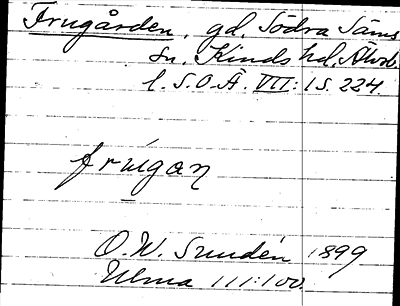 Frugården, gd, Södra Säms
sn. Kinds hd, Älvsb.
l. S.O.Ä. VII:1 S. 224.
frugaɳ
O. W. Sundén 1899
Ulma 111:100.